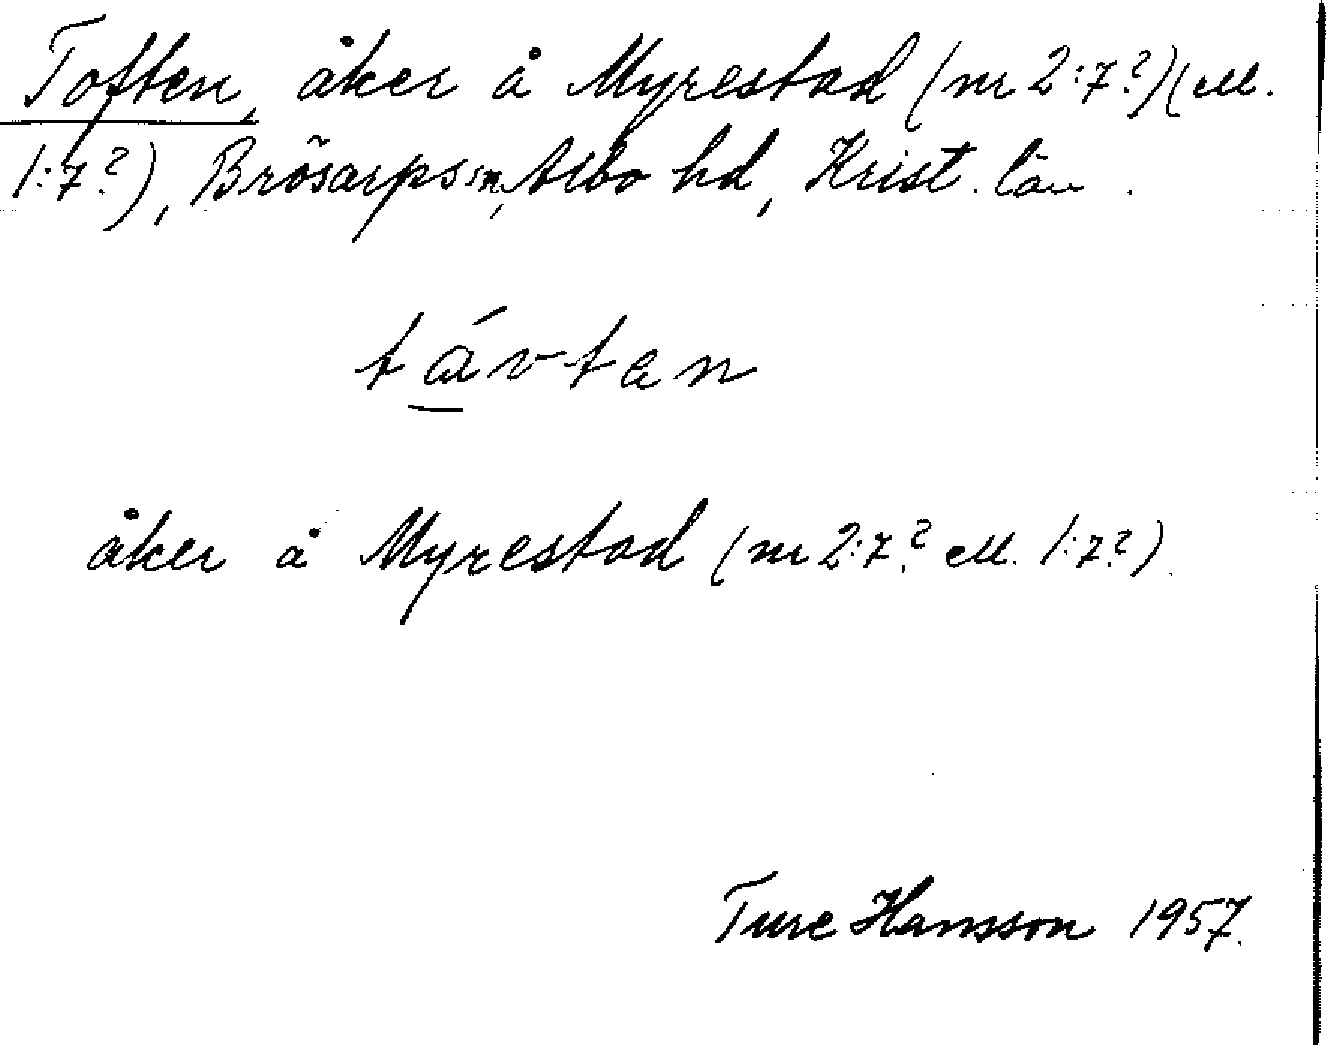 Toften, åker å Myrestad (nr 2:7?)(ell.
1:7?), Brösarps sn, Albo hd, Krist. län.
távtan
åker å Myrestad (nr 2:7? ell. 1:7?).
Ture Hansson 1957.